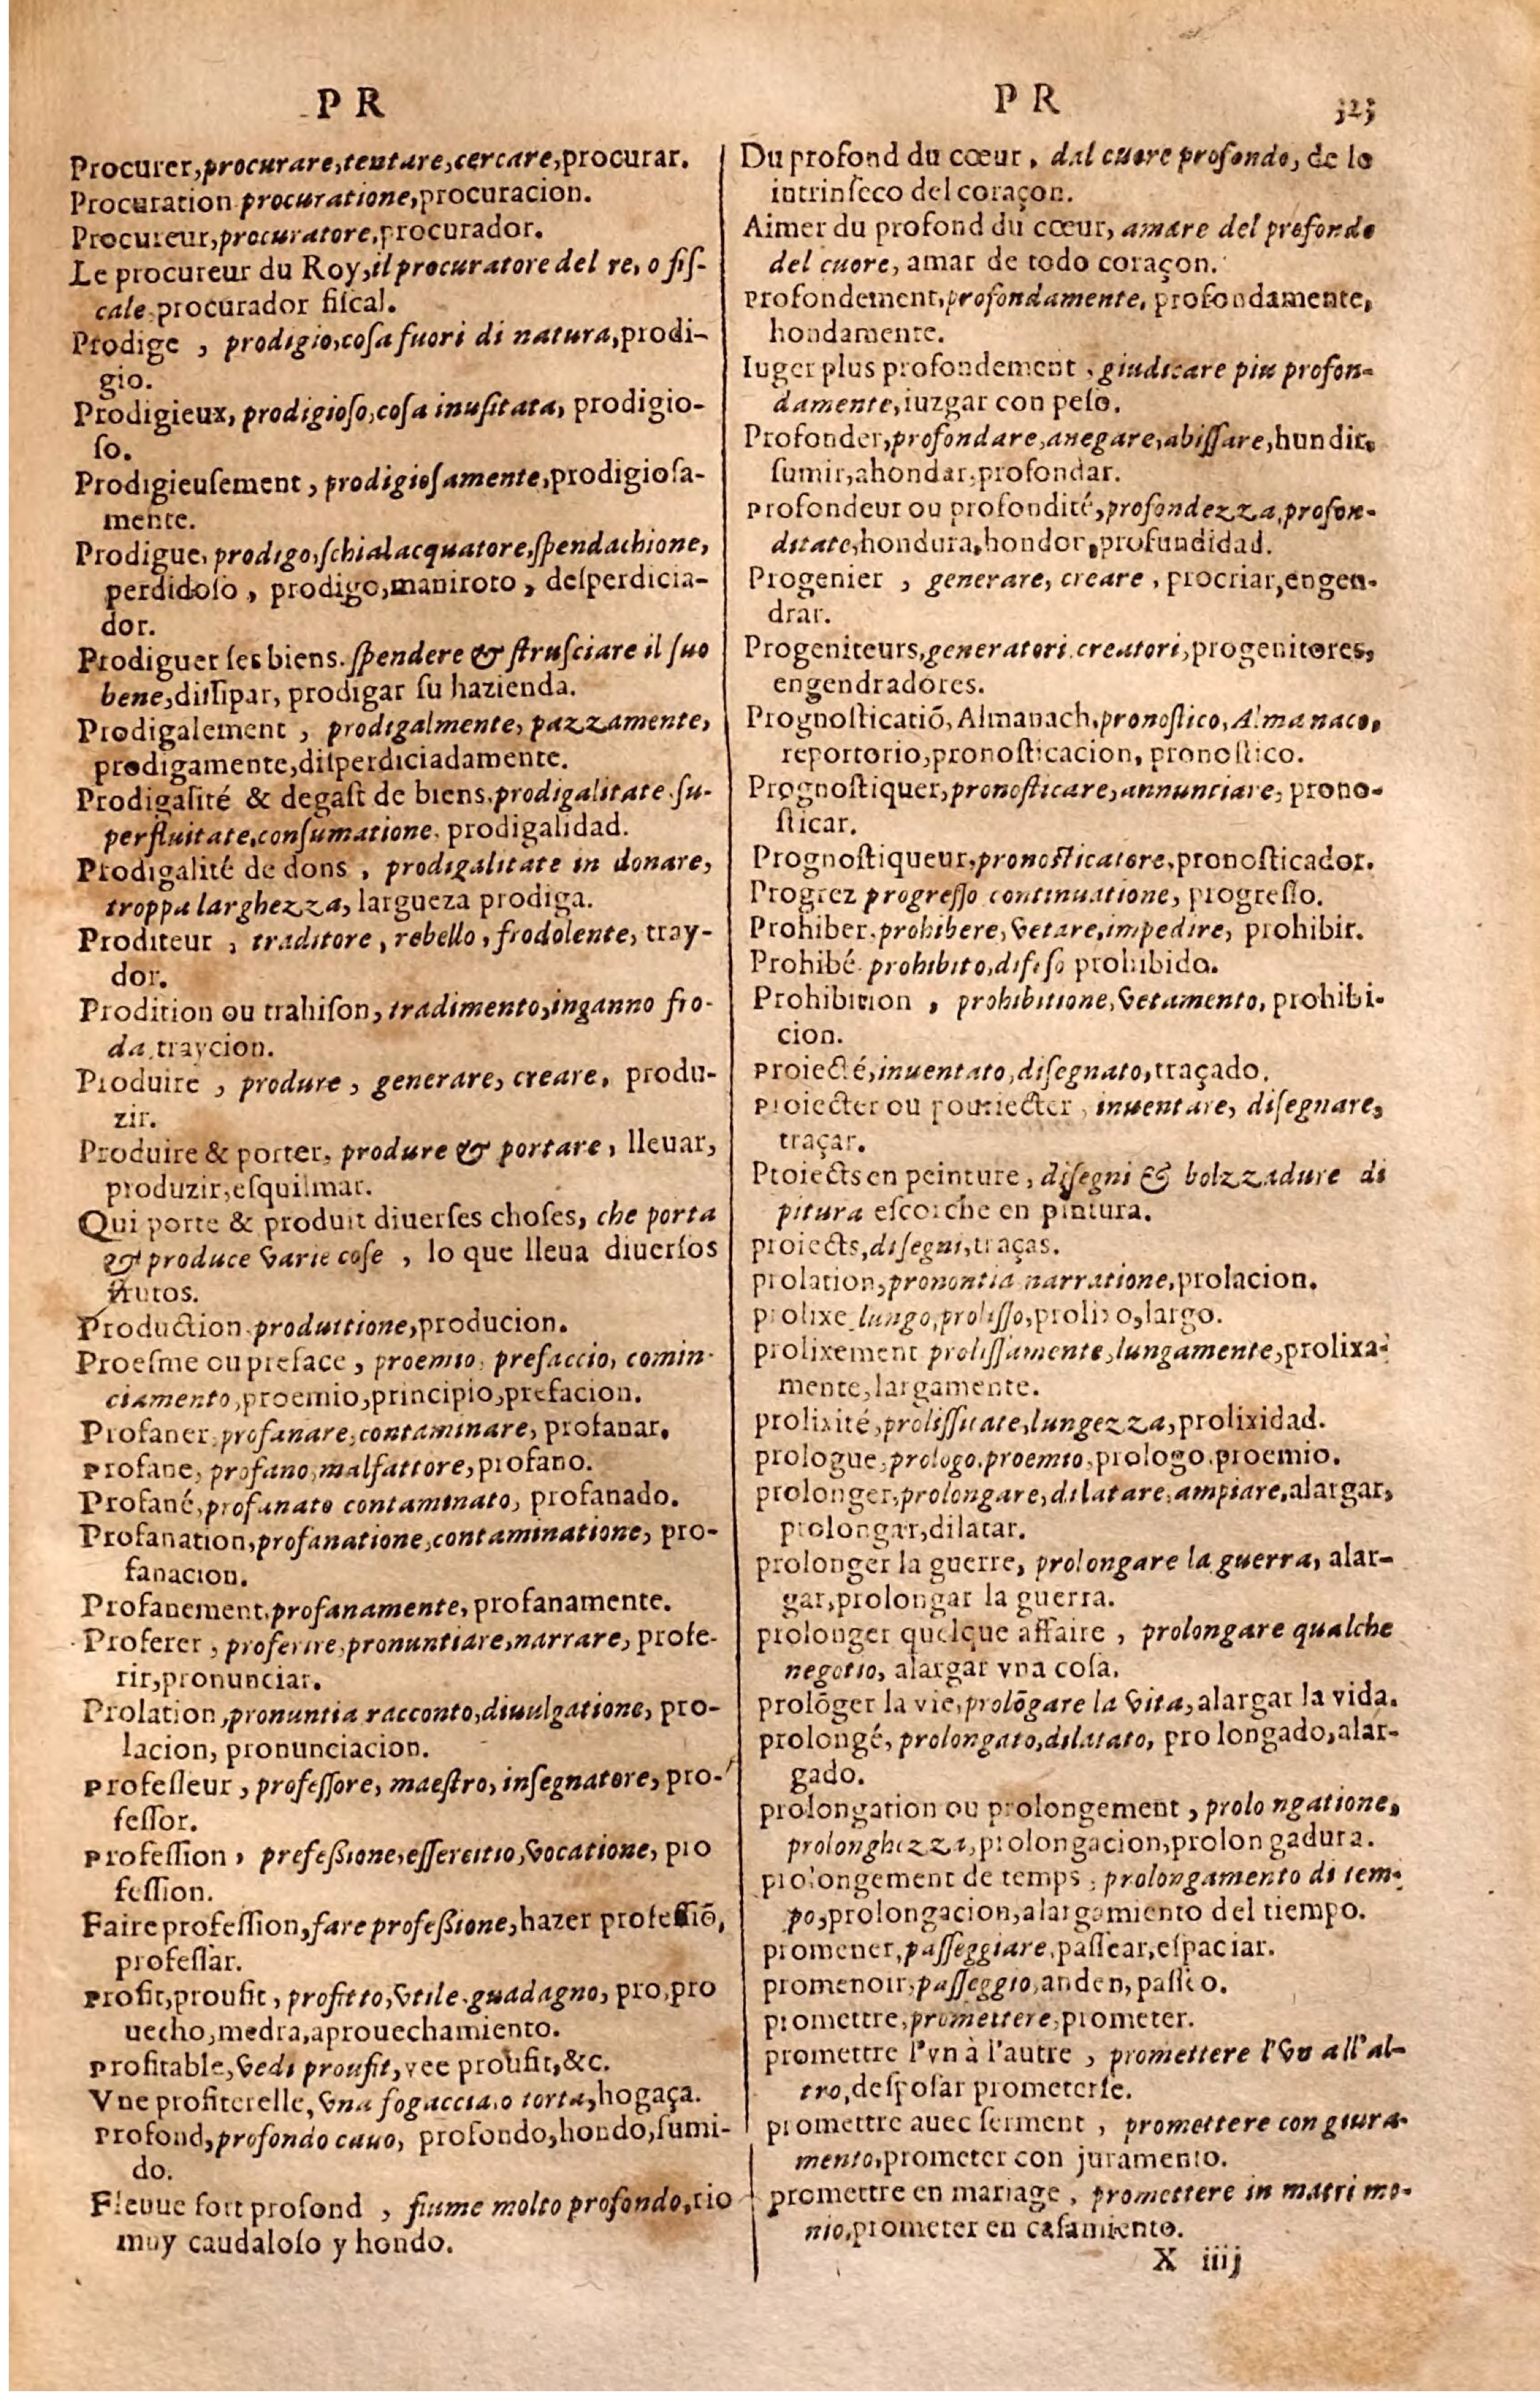 P R
Procurer, procurare, tentare, cercare, procurar.
Procuration procuratione, procuracion.
Procureur, procuratore, procurador.
Le procureur du Roy, il procuratore del re, o fiſ-
cale, procurador fiſcal.
Prodige , prodigio, coſa fuori di natura, prodi-
gio.
Prodigieux, prodigioſo, coſa inuſitata, prodigio-
ſo.
Prodigieuſement , prodigioſamente, prodigioſa-
mente.
Prodigue, prodigo, ſchialacquatore, ſpendachione,
perdidoſo , prodigo, maniroto , deſperdicia-
dor.
Prodiguer ſes biens. ſpendere & ſtruſciare il ſuo
bene, diſſipar, prodigar ſu hazienda.
Prodigalement , prodigalmente, pazzamente,
prodigamente, diſperdiciadamente.
Prodigaſité & degaſt de biens. prodigalitate ſu-
perfluitate, conſumatione, prodigalidad.
Prodigalité de dons , prodigalitate in donare,
troppa larghezza, largueza prodiga.
Proditeur , traditore , rebello, frodolente, tray-
dor.
Prodition ou trahiſon, tradimento, inganno fro-
da, traycion.
Produire , produre , generare, creare, produ-
zir.
Produire & porter, produre & portare , lleuar,
produzir, eſquilmar.
Qui porte & produit diuerſes choſes, che porta
& produce varie coſe , lo que lleua diuerſos
frutos.
Production produttione, producion.
Proeſme ou preface , proemio, prefaccio, comin-
ciamento, proemio, principio, prefacion.
Profaner, profanare, contaminare, profanar.
Profane, profano, malfattore, profano.
Profané, profanato contaminato, profanado.
Profanation, profanatione, contaminatione, pro-
fanacion.
Profanement, profanamente, profanamente.
Proferer , proferire, pronuntiare, narrare, profe-
rir, pronunciar.
Prolation, pronuntia racconto, diuulgatione, pro-
lacion, pronunciacion.
Profeſſeur , profeſſore, maeſtro, inſegnatore, pro-
feſſor.
Profeſſion , profeßione, eſſercitio, vocatione, pro
feſſion.
Faire profeſſion, fare profeßione, hazer profeſſiō,
profeſſar.
Profit, proufit , profitto, vtile, guadagno, pro, pro
uecho, medra, aprouechamiento.
Profitable, vedi proufit, vee proufit, &c.
Vne profiterelle, vna fogaccia, o torta, hogaça.
Profond, profondo cauo, profondo, hondo, ſumi-
do.
Fleuue fort profond , fiume molto profondo, rio
muy caudaloſo y hondo.
P R 323
Du profond du cœur , dal cuore profondo, de lo
intrinſeco del coraçon.
Aimer du profond du cœur, amare del profondo
del cuore, amar de todo coraçon.
Profondement, profondamente, profondamente,
hondamente.
Iuger plus profondement , giudicare piu profon-
damente, iuzgar con peſo.
Profonder, profondare, anegare, abiſſare, hundir,
ſumir, ahondar, profondar.
Profondeur ou profondité, profondezza, profon-
ditate, hondura, hondor, profundidad.
Progenier , generare, creare , procriar, engen-
drar.
Progeniteurs, generatori, creatori, progenitores,
engendradores.
Prognoſticatiō, Almanach, pronoſtico, Almanaco,
reportorio, pronoſticacion, pronoſtico.
Prognoſtiquer, pronoſticare, annunciare, prono-
ſticar.
Prognoſtiqueur, pronoſticatore, pronoſticador.
Progrez progreſſo continuatione, progreſſo.
Prohiber, prohibere, vetare, impedire, prohibir.
Prohibé prohibito, difeſo prohibido.
Prohibition , prohibitione, vetamento, prohibi-
cion.
Proiecté, inuentato, diſegnato, traçado.
Proiecter ou pouriecter , inuentare, diſegnare,
traçar.
Proiects en peinture , diſegni & bolzzadure di
pitura eſcorche en pintura.
proiects, diſegni, traças.
prolation, pronontia narratione, prolacion.
prolixe lungo, proliſſo, prolixo, largo.
prolixement proliſſamente, lungamente, prolixa-
mente, largamente.
prolixité, proliſſitate, lungezza, prolixidad.
prologue, prologo, proemio, prologo, proemio.
prolonger, prolongare, dilatare, ampiare, alargar,
prolongar, dilatar.
prolonger la guerre, prolongare la guerra, alar-
gar, prolongar la guerra.
prolonger quelque affaire , prolongare qualche
negotio, alargar vna coſa.
prolōger la vie, prolōgare la vita, alargar la vida.
prolongé, prolongato, dilatato, pro longado, alar-
gado.
prolongation ou prolongement , prolo ngatione,
prolonghezza, prolongacion, prolongadura.
prolongement de temps , prolongamento di tem-
po, prolongacion, alargamiento del tiempo.
promener, paſſeggiare, paſſear, eſpaciar.
promenoir, paſſeggio, anden, paſſeo.
promettre, promettere, prometer.
promettre l'vn à l'autre , promettere l'vn all'al-
tro, deſpoſar prometerſe.
promettre auec ſerment , promettere con giura-
mento, prometer con juramento.
promettre en mariage , promettere in matri mo-
nio, prometer en caſamiento.
X iiij